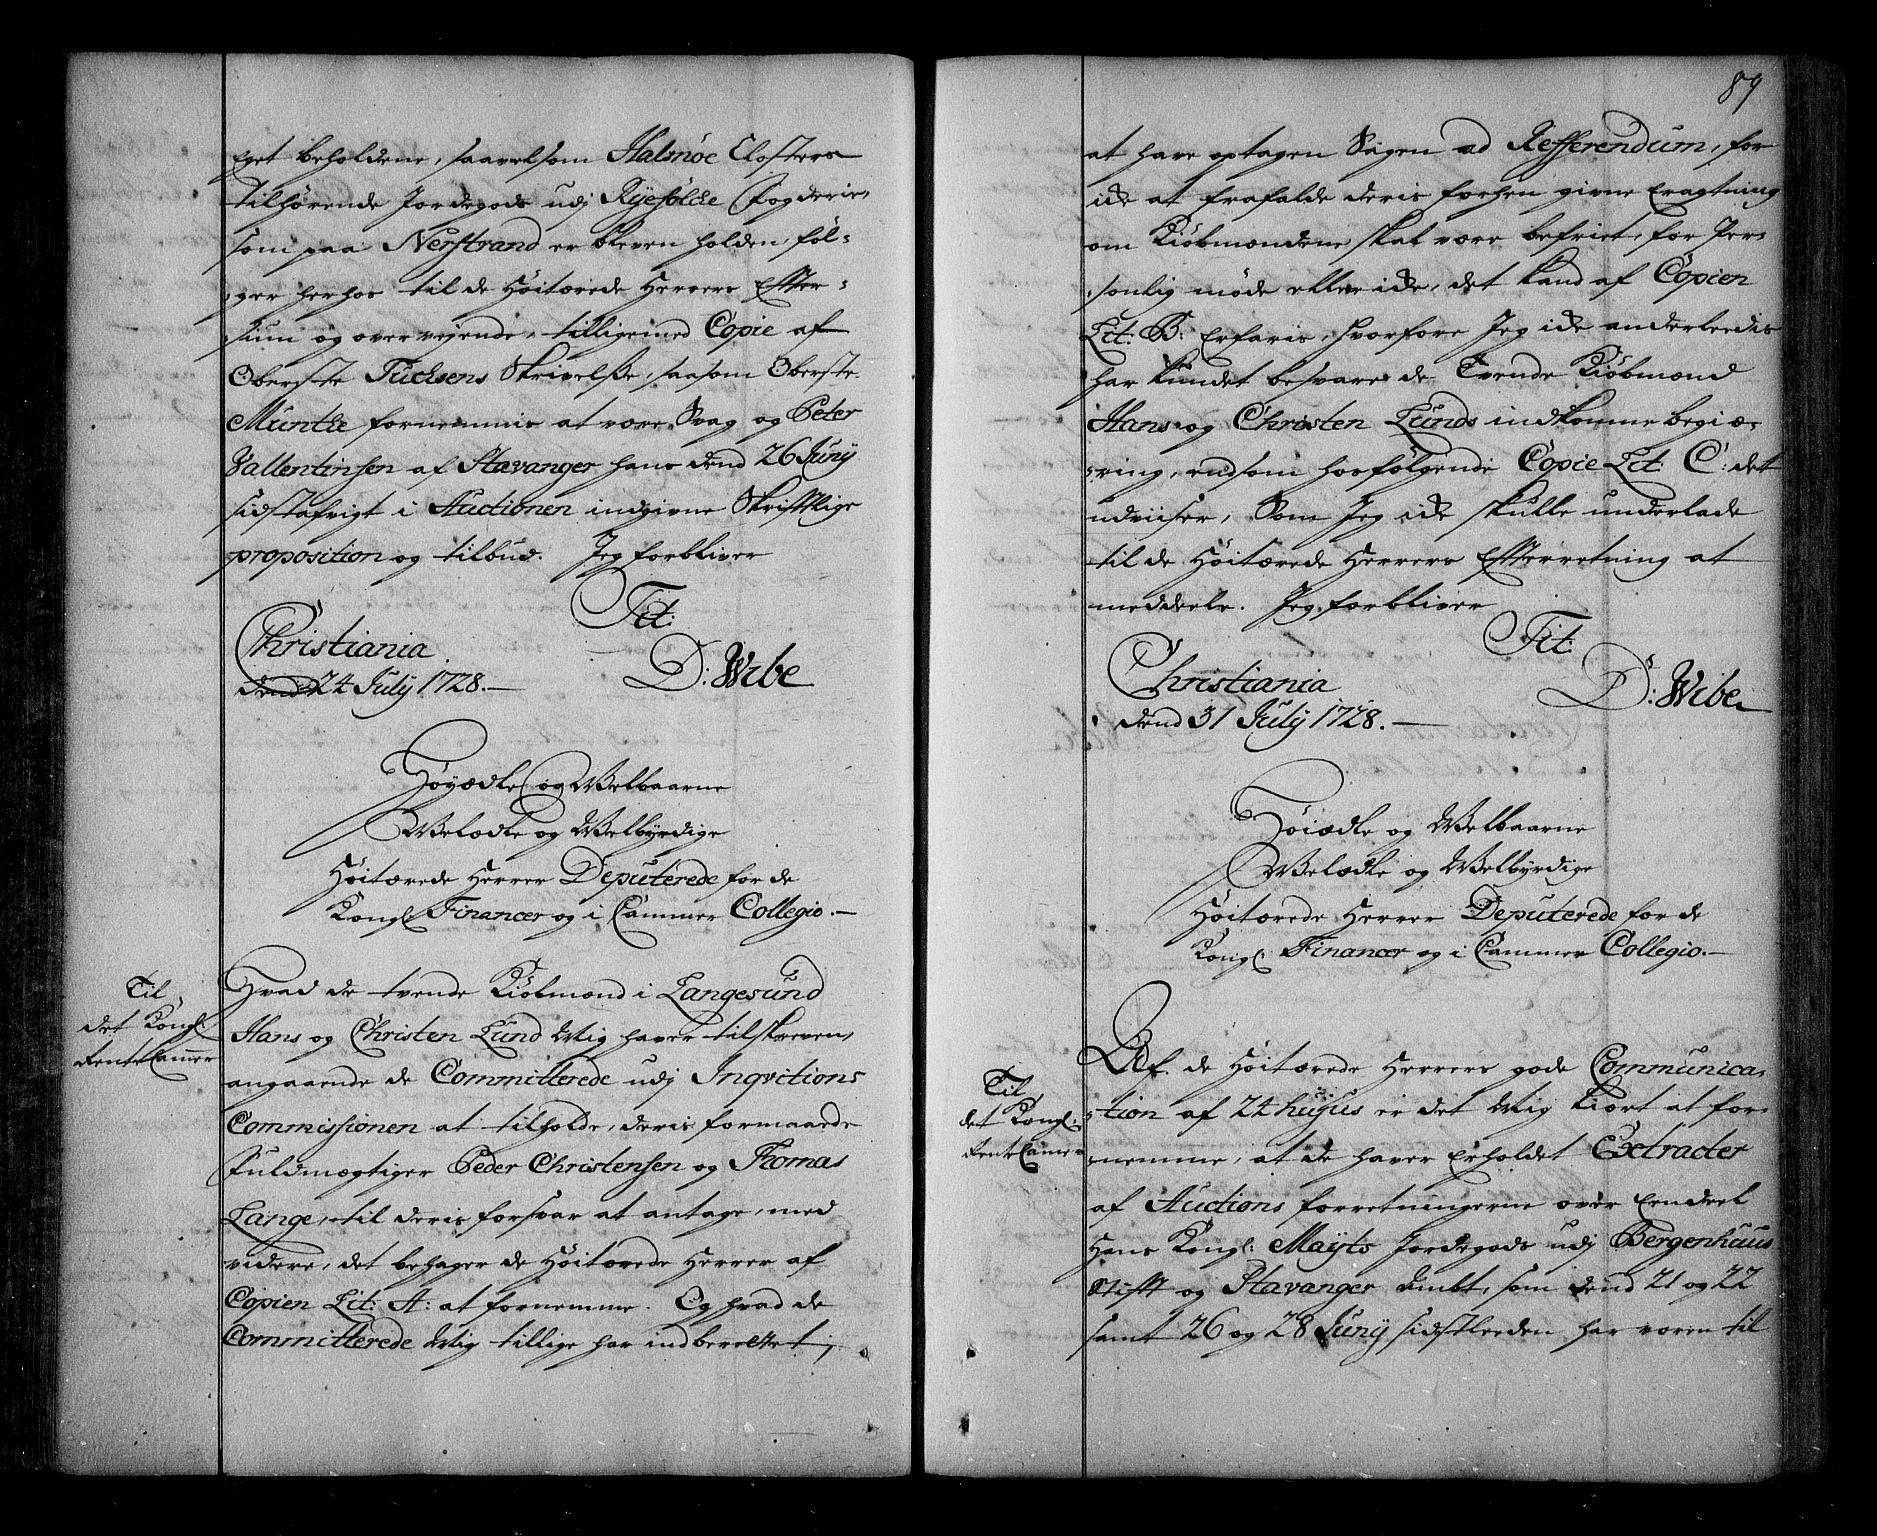 Eget beholdene, saavelsom Halsnøe Closters
tilhørende Jordegods udj Ryefølcke Fogderie,
som paa Nerstrand er bleven holden, føl-
ger herhos til de Høitærede Herrers Effter-
siun og overvejende, tilligemed Copie af
Oberste Tuchsens Skrivelße, saasom Oberste
Müntke fornemmis at være Svag og Peter
Vallentinsen af Stavanger hans dend 26 Juny
sidstafvigt i Auctionen indgivne Skrifftlige
proposition og tilbud. Jeg forbliver
Tit:
Christiania
dend 24 July 1728.
D: Wibe
Høyædle og Welbaarne
Welædle og Welbyrdige
Høitærede Herrer Deputerede for de
Kongl: Financer og i Cammer Collegio.
Til
det Kongl:
Rente Camer
Hvad de tvende Kiøbmænd i Langesund
Hans og Christen Lund Mig haver tilskreven,
angaaende de Committerede udj Inqvitions
Commissionen at tilholde, deris formaaede
Fuldmægtiger Peder Christensen og Thomas
Lange, til deris forsvar at antage, med
videre, det behager de Høitærede Herrer af
Copien Lit: A: at fornemme. Og hvad de
Committerede Mig tillige har indberettet,
89
at have optagen Sagen ad Refferendum, for
ide at frafalde deris forhen givne Eragtning
om Kiøbmændene skal være befriet, for Per-
sonlig møde eller ide, det kand af Copien
Lit: B: Erfaris, hvorfore Jeg ide anderleedis
har kundet besvare de Tvende Kiøbmænd
Hans og Christen Lunds indkomne begiæ-
ring, end som hosfølgende Copie Lit: C: det
udviiser, Som Jeg ide skulle underlade
til de Høitærede Herrers Effterretning at
meddeele. Jeg forbliver
Tit:
Christiania
dend 31 July 1728.
D: Wibe
Høiædle og Welbaarne
Welædle og Welbyrdige
Høitærede Herrer Deputerede for de
Kongl: Financer og i Cammer Collegio.
Til
det Kongl:
Rente Camer
Af de Høitærede Herrers gode Communica-
tion af 24 hujus er det Mig kiært at for-
nemme, at de haver Erholdet Extracter
af Auctions forretningerne over Eendeel
Hans Kongl: Mayts Jordegods udj Bergenhuus
Stifft og Stavanger Ambt, som dend 21 og 22
samt 26 og 28 Juny sidstleeden har væren til